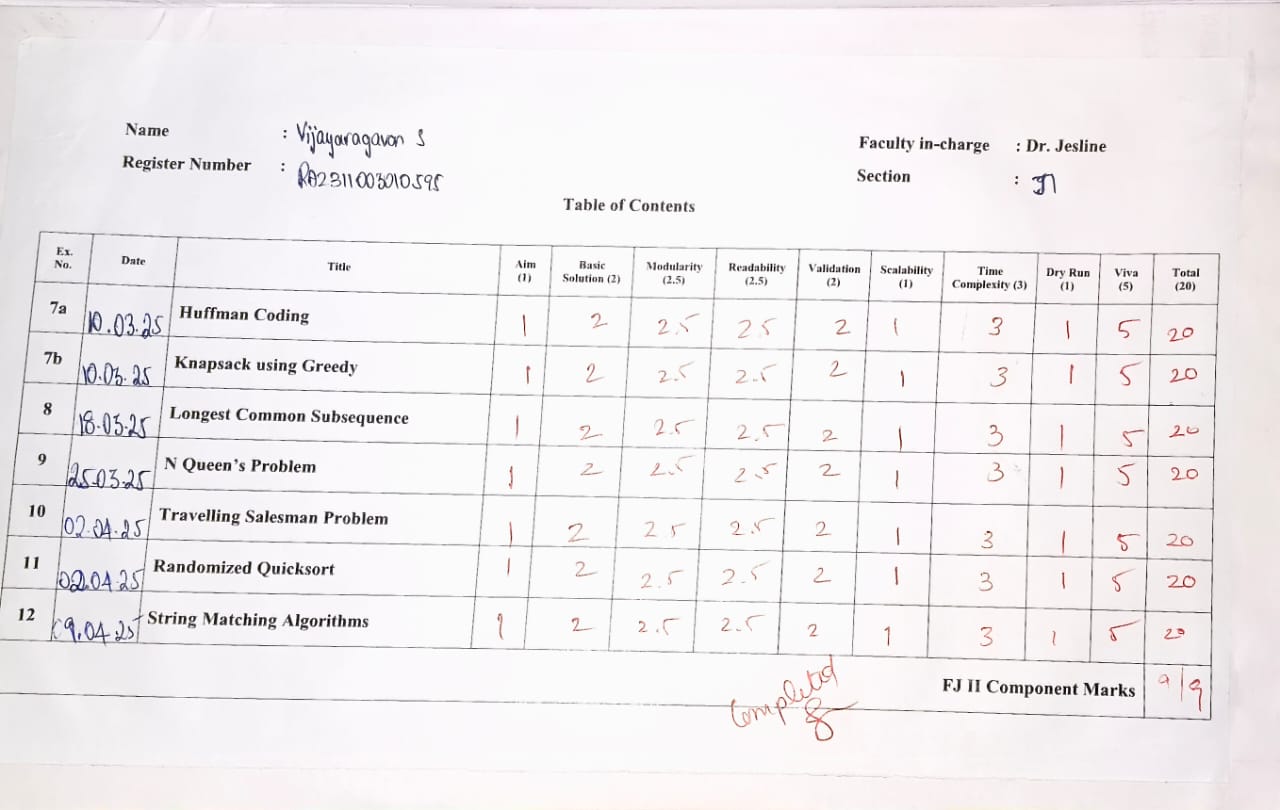 Name : Vijayaragavan S
Faculty in-charge : Dr. Jesline
Register Number : RA2311003010595
Section : J1
Table of Contents
Ex. No. Date Title Aim (1) Basic Solution (2) Modularity (2.5) Readability (2.5) Validation (2) Scalability (1) Time Complexity (3) Dry Run (1) Viva (5) Total (20)
7a 10.03.25 Huffman Coding 1 2 2.5 2.5 2 1 3 1 5 20
7b 10.03.25 Knapsack using Greedy 1 2 2.5 2.5 2 1 3 1 5 20
8 18.03.25 Longest Common Subsequence 1 2 2.5 2.5 2 1 3 1 5 20
9 25.03.25 N Queen's Problem 1 2 2.5 2.5 2 1 3 1 5 20
10 02.04.25 Travelling Salesman Problem 1 2 2.5 2.5 2 1 3 1 5 20
11 02.04.25 Randomized Quicksort 1 2 2.5 2.5 2 1 3 1 5 20
12 09.04.25 String Matching Algorithms 1 2 2.5 2.5 2 1 3 1 5 20
FJ II Component Marks 9/9
Completed